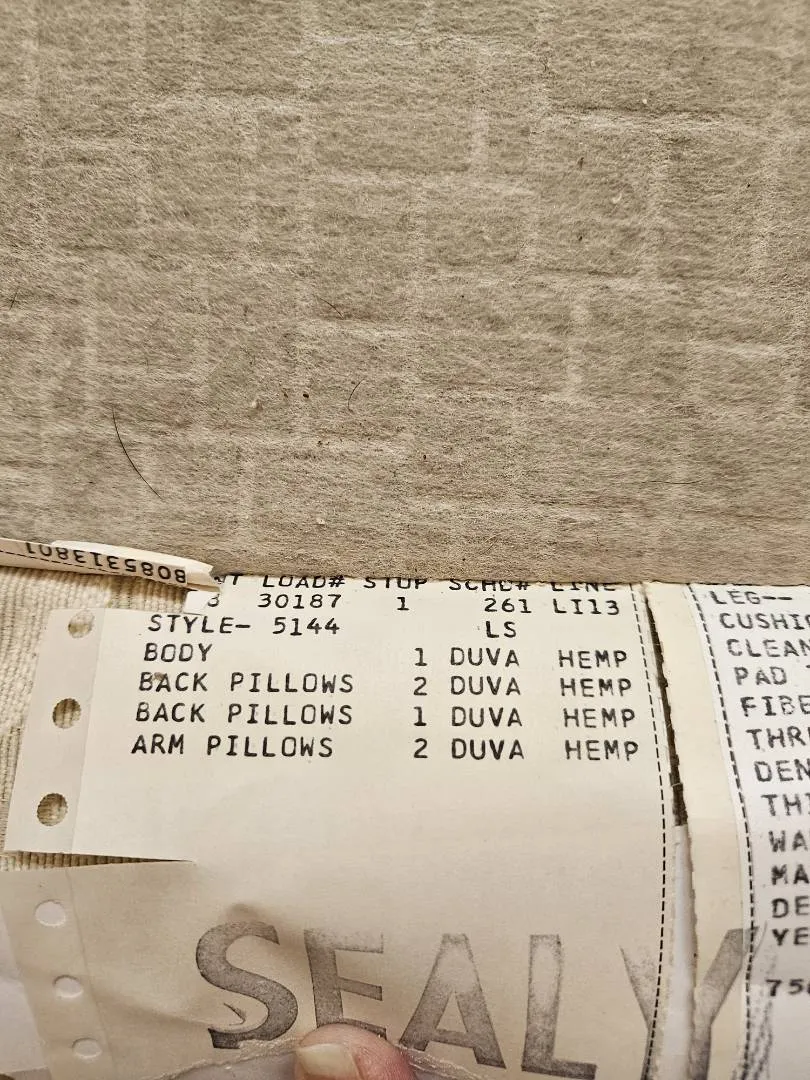 808531380
LOAD# STOP SCHD# LINE
30187 1 261 LI13
STYLE- 5144 LS
BODY 1 DUVA HEMP
BACK PILLOWS 2 DUVA HEMP
BACK PILLOWS 1 DUVA HEMP
ARM PILLOWS 2 DUVA HEMP
SEALY
LEG--
CUSHIO
CLEAN
PAD
FIBE
THR
DEN
THI
WA
MA
DE
YE
75